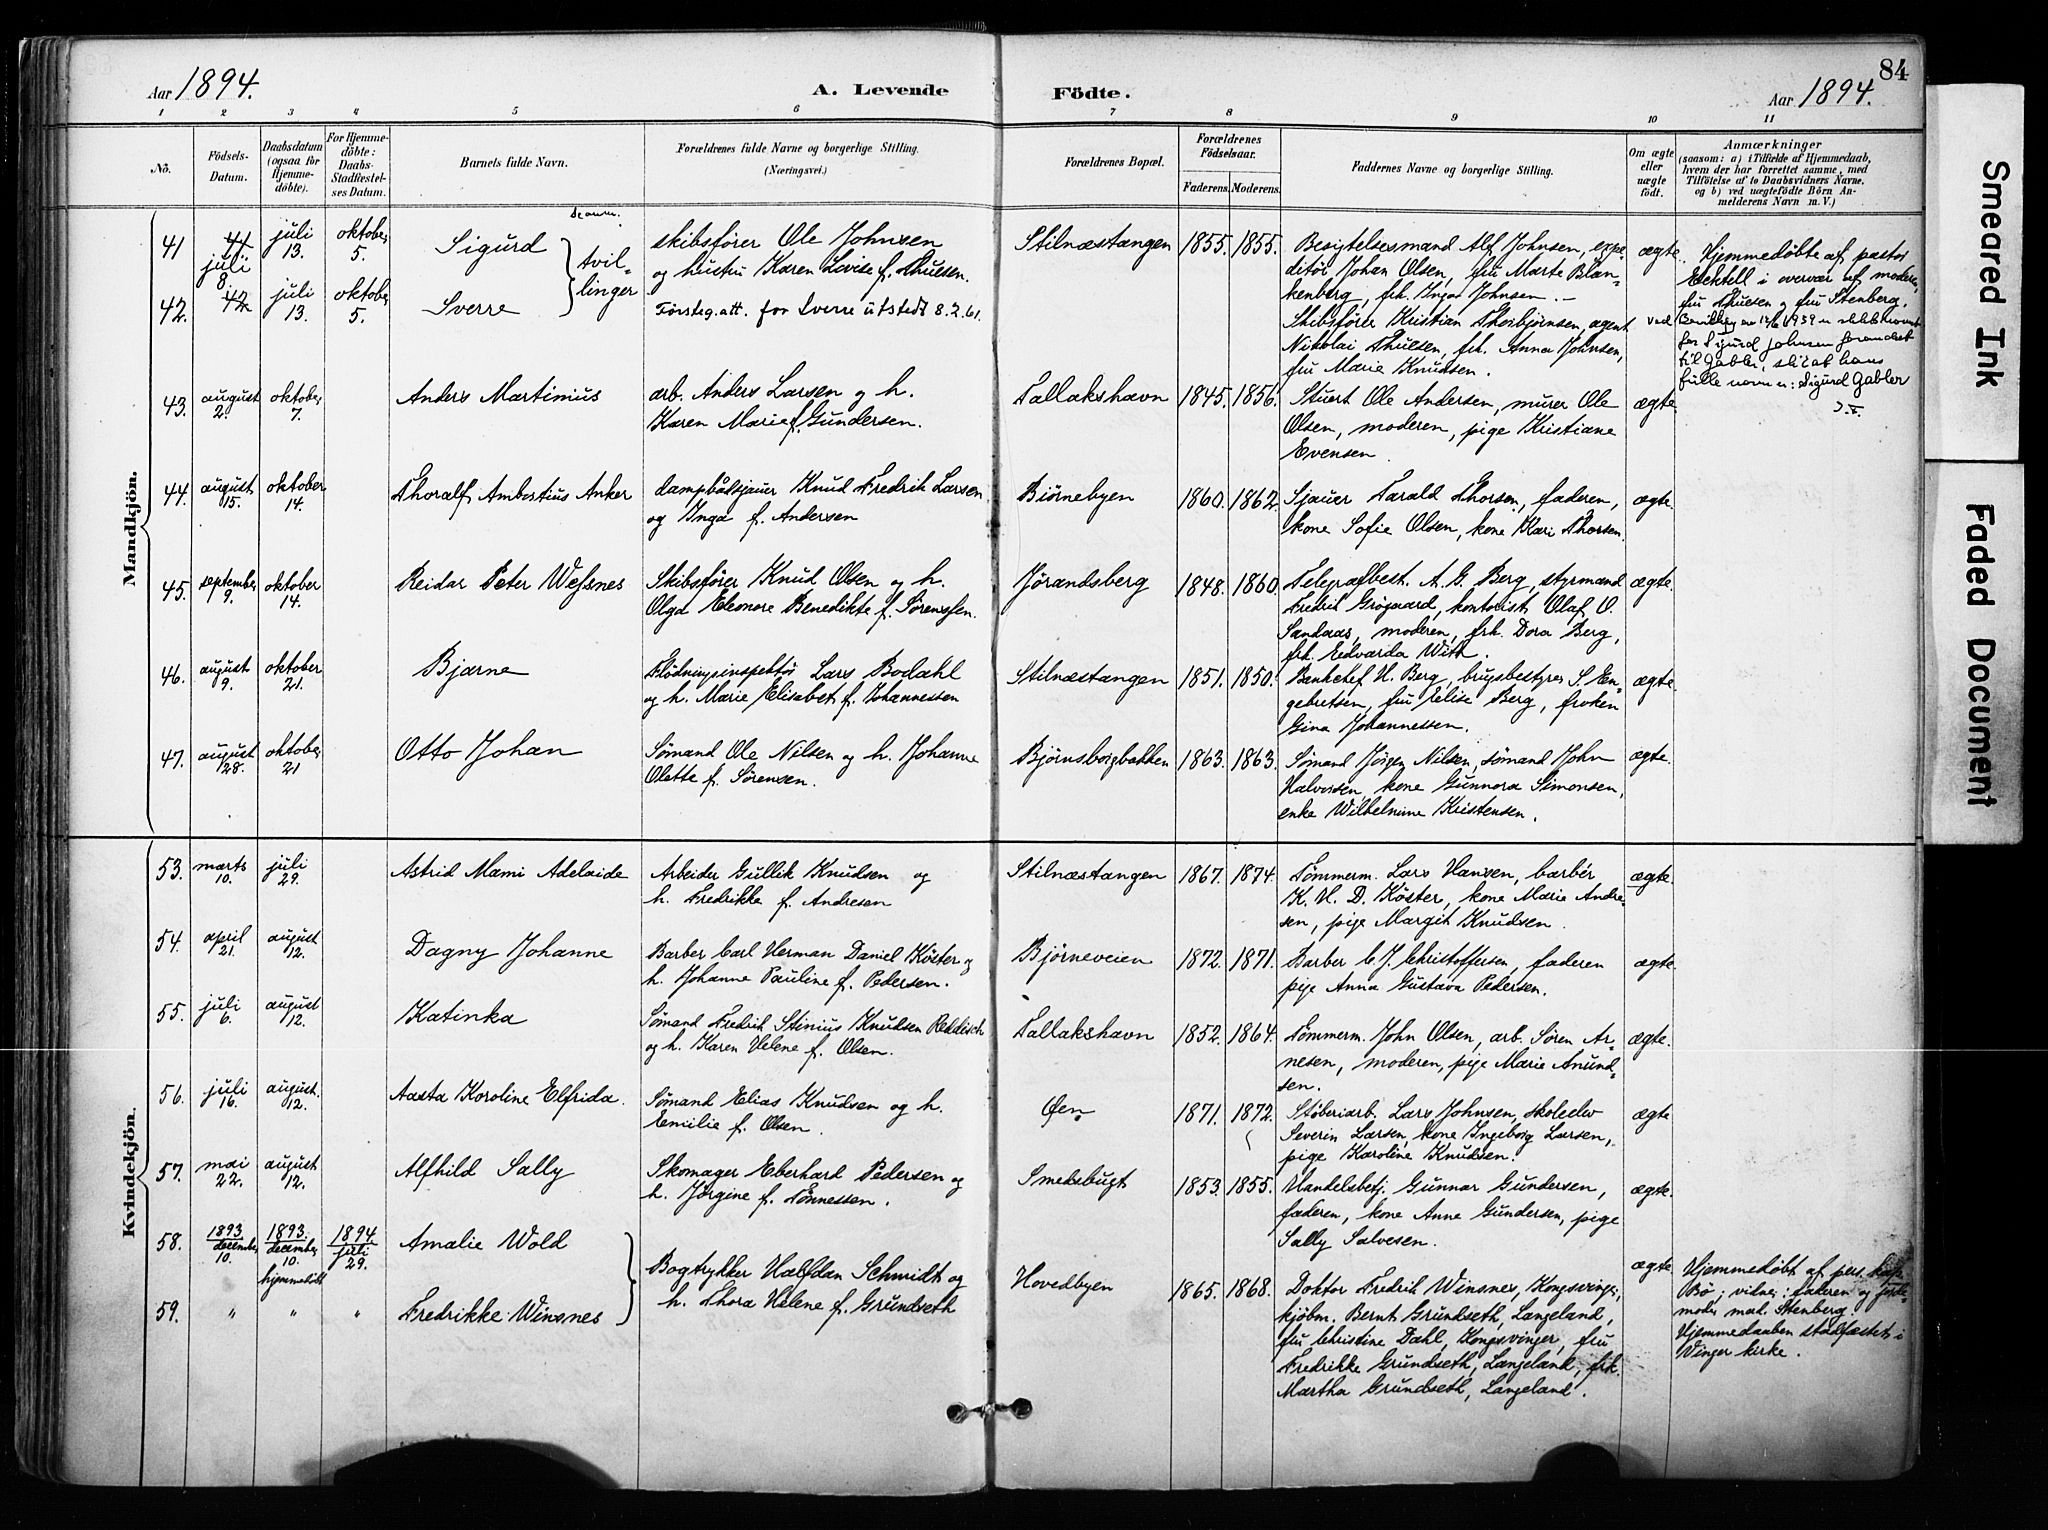 84
Aar 1894.
A. Levende Födte.
Aar 1894.
1 2 3 4 5 6 7 8 9 10 11
No.
Födsels-Datum.
Daabsdatum (ogsaa for Hjemmedöbte).
For Hjemmedöbte: Daabs-Stadfæstelses Datum.
Barnets fulde Navn.
Forældrenes fulde Navne og borgerlige Stilling.
(Næringsvei.)
Forældrenes Bopæl.
Forældrenes Födselsaar.
Faderens. Moderens.
Faddernes Navne og borgerlige Stilling.
Om ægte eller uægte födt.
Anmærkninger
(saasom: a) i Tilfælde af Hjemmedaab,
hvem der har forrettet samme, med
Tilföielse af to Daabsvidners Navne,
og b) ved uægtefödte Börn Anmelderens Navn m. V.)
Mandkjön.
41 juli 8 juli 13. oktober 5. Sigurd } tvillinger
skibsfører Ole Johnsen
og hustru Karen Lovise f. Thuesen.
Stilnæstangen 1855. 1855.
Besigtelsesmand Alf Johnsen, expeditør
Johan Olsen, fru Marte Blankenberg,
frk. Inga Johnsen. –
ægte.
Hjemmedøbte af pastor
Ecktell i overvær af moderen,
fru Thuesen og fru Stenberg.
42. juli 13. oktober 5. Sverre
Førsteg. att. for Sverre utstedt 8.2.61.
Skibsfører Kristian Thorbjørnsen, agent
Nikolai Thuesen, frk. Anna Johnsen,
fru Marie Knudsen.
Ved
Bevilling av 12/6 1939 er slektsnavnet
for Sigurd Johnsen forandret
til Gabler, slik at hans
fulle navn er: Sigurd Gabler
43. august 2. oktober 7. Anders Martinius
arb. Anders Larsen og h.
Karen Marie f. Gundersen.
Tallakshavn 1845. 1856.
Stuert Ole Andersen, murer Ole
Olsen, moderen, pige Kristiane
Evensen.
ægte.
44. august 15. oktober 14. Thoralf Ambortius Anker
dampbåtsjauer Knud Fredrik Larsen
og Inga f. Andersen
Bjørnebyen 1860. 1862
Sjauer Tarald Thorsen, faderen,
kone Sofie Olsen, kone Kari Thorsen.
ægte.
45. september 9. oktober 14. Reidar Peter Wessnes
Skibsfører Knud Olsen og h.
Olga Eleonore Benedikte f. Sørenssen.
Jørandsberg 1848. 1860.
Telegrafbest. A. G. Berg, styrmand
Fredrik Grögaard, kontorist Olaf O.
Sandaas, moderen, frk. Dora Berg,
frk. Edvarda With.
ægte.
46. august 9. oktober 21. Bjarne
Flödningsinspektör Lars Bodahl
og h. Marie Elisabet f. Johannessen
Stilnæstangen 1851. 1850.
Bankchef H. Berg, brugsbestyrer S. Engebretsen,
fru Elise Berg, frøken
Gina Johannessen.
ægte.
47. august 28. oktober 21 Otto Johan
Sömand Ole Nilsen og h. Johanne
Olette f. Sørensen.
Bjørnsborgbakken 1863. 1863.
Sömand Jørgen Nilsen, sømand John
Halvorsen, kone Gunnora Simonsen,
enke Wilhelmine Kristensen.
ægte.
Kvindekjön.
53. marts 10. juli 29. Astrid Mami Adelaide
Arbeider Gullik Knudsen og
h. Fredrikke f. Andresen
Stilnæstangen 1867. 1874.
Tømmerm. Lars Hansen, barbér
K. H. D. Köster, kone Marie Andresen,
pige Margit Knudsen.
ægte.
54. april 21. august 12. Dagny Johanne
Barber Carl Herman Daniel Köster og
h. Johanne Pauline f. Pedersen.
Bjørneveien 1872. 1871.
Barber C. J. Christoffersen, faderen
pige Anna Gustava Pedersen.
ægte.
55. juli 6. august 12. Katinka
Sømand Fredrik Stinius Knudsen Reddisch
og h. Karen Helene f. Olsen.
Tallakshavn 1852. 1864.
Tømmerm. John Olsen, arb. Søren Arnesen,
moderen, pige Marie Anundsen.
ægte.
56. juli 16. august. 12. Aasta Karoline Elfrida.
Sømand Elias Knudsen og h.
Emilie f. Olsen.
Øen 1871. 1872.
Støberiarb. Lars Johnsen, skoleelev
Severin Larsen, kone Ingeborg Larsen,
pige Karoline Knudsen.
ægte
57. mai 22. august 12. Alfhild Sally
Skomager Eberhard Pedersen og
h. Jørgine f. Tønnessen.
Smedsbugt 1853. 1855.
Handelsbetj. Gunnar Gundersen,
faderen, kone Anne Gundersen, pige
Sally Salvesen.
ægte.
58. 1893 december 10. 1893. december 10. hjemmedöbt 1894. juli 29. Amalie Wold
59. " " " Fredrikke Winsnes
Bogtrykker Halfdan Schmidt og
h. Thora Helene f. Grundseth
Hovedbyen 1865. 1868.
Doktor Fredrik Winsnes, Kongsvinger,
kjøbm. Bernt Grundseth, Langeland,
fru Christine Dahl, Kongsvinger, fru
Fredrikke Grundseth, Langeland, frk.
Martha Grundseth, Langeland.
ægte.
Hjemmedøbt af pers. kap.
Bö; vidner: faderen og jordemoder
mad. Stenberg.
Hjemmedaaben stadfæstet i
Winger kirke.
Smeared Ink
Faded Document